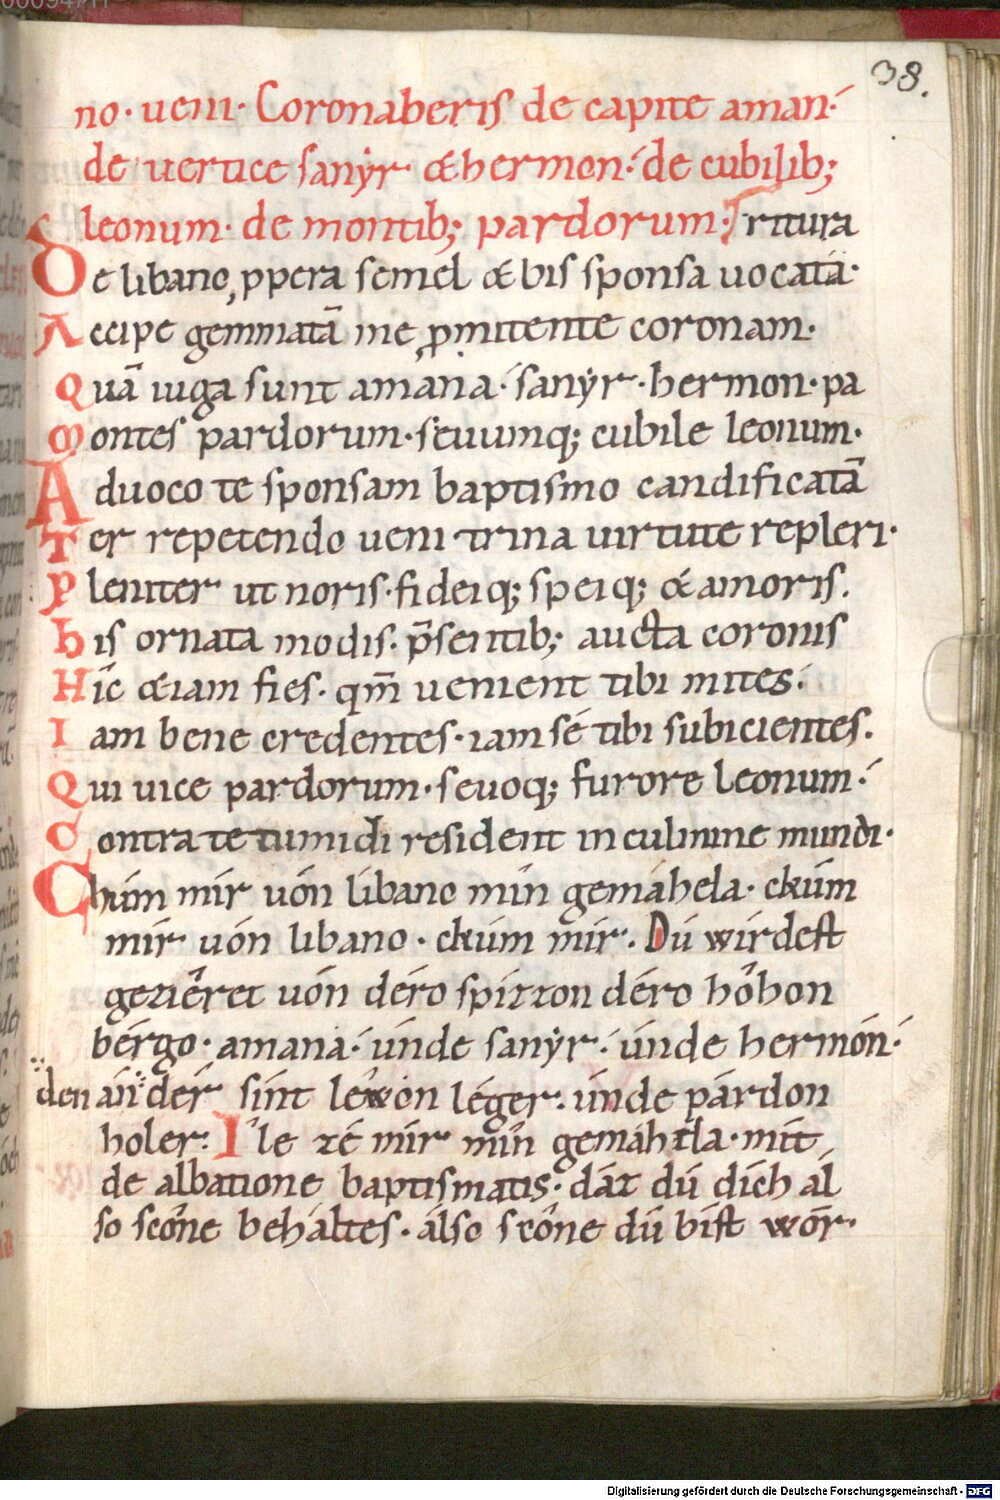 38.
no· ueni· Coronaberis de capite aman·
de uertice sanẏr· &hermon· de cubilib;
leonum· de montib; pardorum·
ritura
De libano ppera semel & bis sponsa uocata·
Accipe gemmatā me p̱mittente coronam·
Quā iuga sunt amana· sanẏr· hermon· pa
Montes pardorum· seuumq; cubile leonum·
Aduoco te sponsam baptismo candificatā
Ter repetendo ueni trina uirtute repleri·
Pleniter ut noris· fideiq; speiq; & amoris.
his ornata modis· p̄sentib; aucta coronis
Hīc &iam fies· qm̄ uenient tibi mites·
Iam bene credentes· iam sé tibi subicientes.
Qui uice pardorum· seuoq; furore leonum·
Contra te tumidi resident in culmine mundi·
Chúm mír uón libano mín gemáhela· ckúm
mír uón libano· ckúm mír. Dú wírdest
gezîeret uón déro spízzon déro hôhon
bérgo· amana· únde sanẏr· únde hermón·
den án der sínt léwon léger· únde párdon
holer· Ile zé mír mín gemáhela· mít
de albatione baptismatis· dáz dú dích ál
so scône behaltes· álso scône dú bíst wór·
00094711
Digitalisierung gefördert durch die Deutsche Forschungsgemeinschaft - DFG